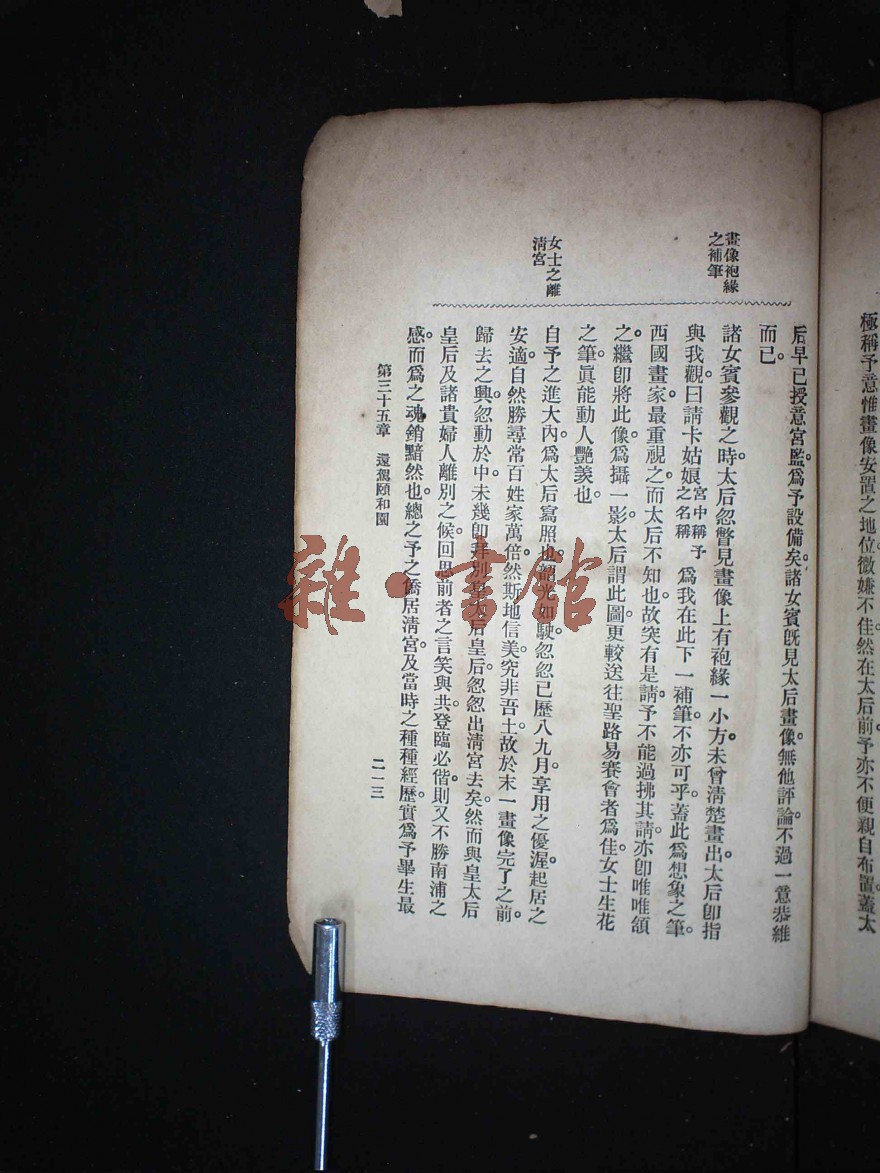 極稱予意惟畫像安置之地位微嫌不佳然在太后前予亦不便親自布置蓋太
后早已授意宮監爲予設備矣諸女賓旣見太后畫像無他評論不過一意恭維
而已。
畫像袍緣
之補筆
諸女賓參觀之時太后忽瞥見畫像上有袍緣一小方未曾淸楚畫出太后卽指
與我觀。曰請卡姑娘宮中稱予之名稱爲我在此下一補筆不亦可乎蓋此爲想象之筆。
西國畫家最重視之而太后不知也故突有是請予不能過拂其請亦卽唯唯頷
之。繼卽將此像爲攝一影太后謂此圖更較送往聖路易賽會者爲佳女士生花
之筆眞能動人豔羨也。
女士之離
淸宮
自予之進大內爲太后寫照也韶光如駛忽忽已歷八九月享用之優渥起居之
安適。自然勝尋常百姓家萬倍然斯地信美究非吾土故於末一畫像完了之前。
歸去之興忽動於中未幾卽拜別皇太后皇后忽忽出淸宮去矣然而與皇太后
皇后及諸貴婦人離別之候回思前者之言笑與共登臨必偕則又不勝南浦之
感。而爲之魂銷黯然也總之予之僑居淸宮及當時之種種經歷實爲予畢生最
第三十五章 還駕頤和園
二一三
雜·書館